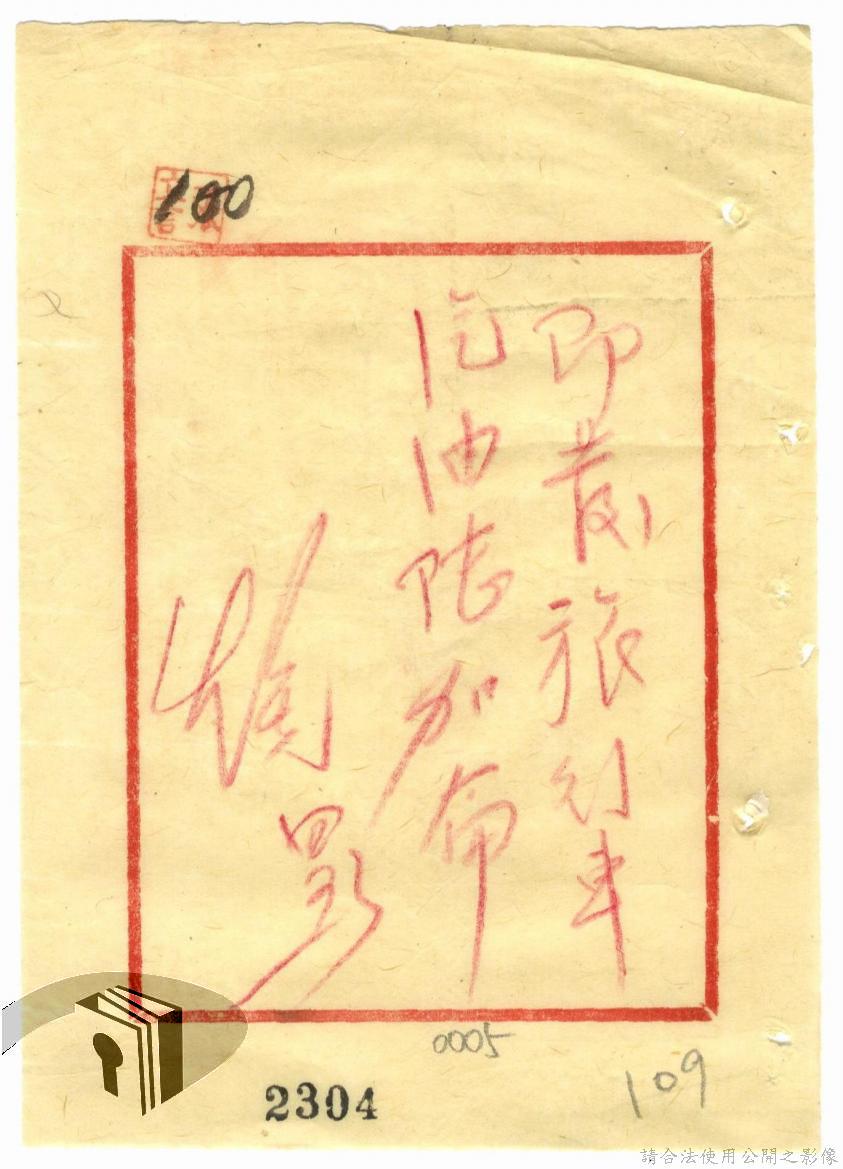 100
即發旅行車
汽油陸加侖
0005
109
2304
請合法使用公開之影像